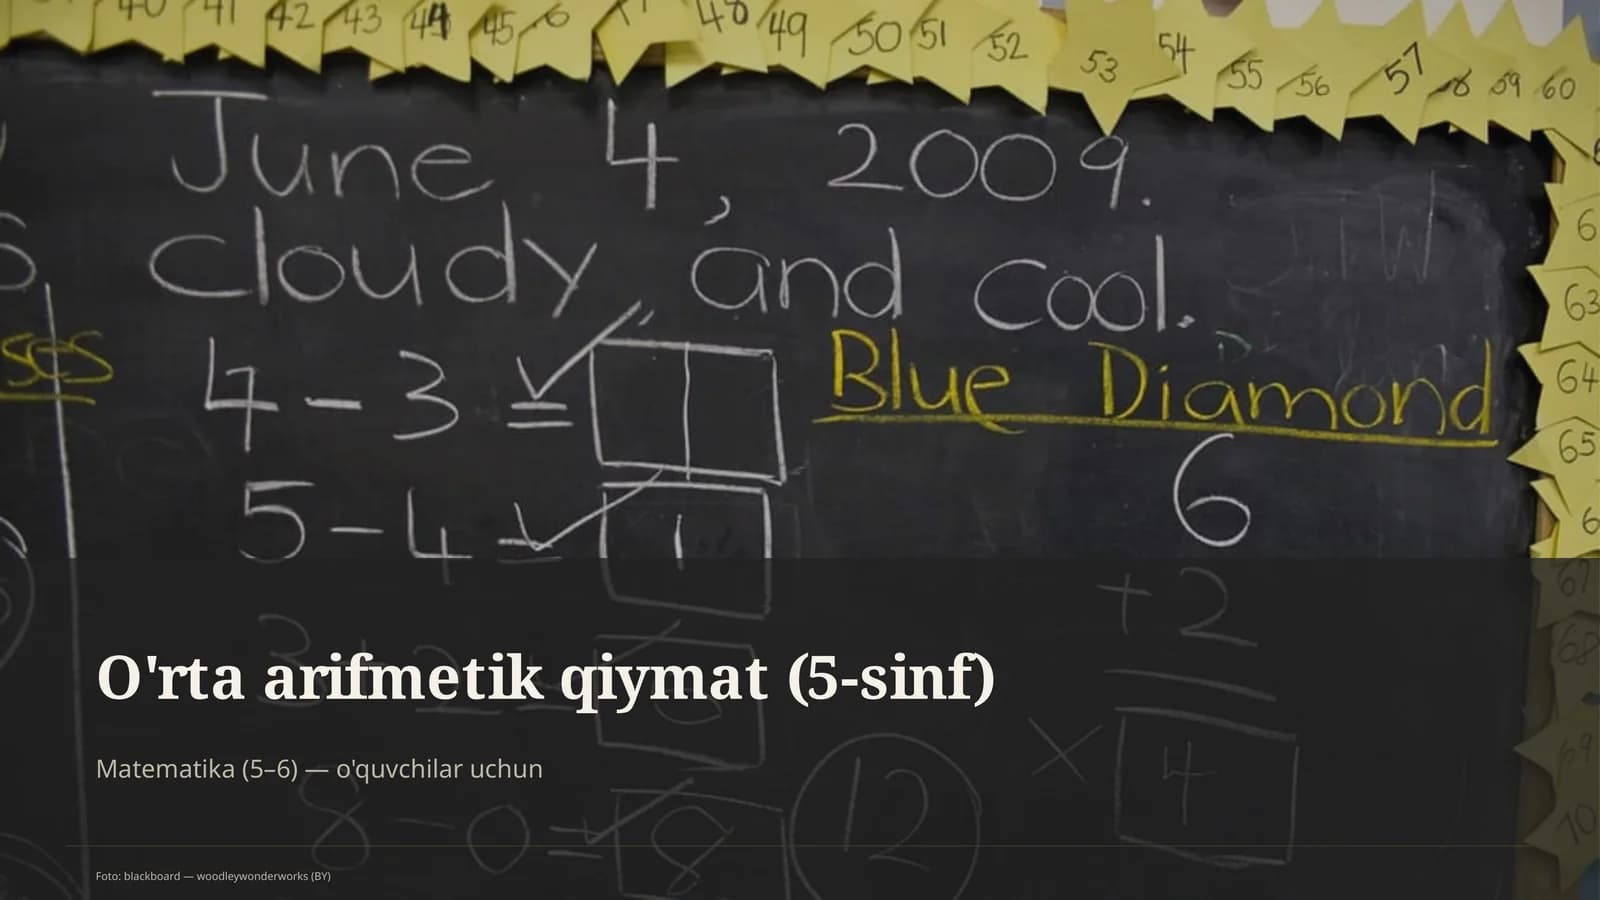 40 41 42 43 44 45 48 49 50 51 52 53 54 55 56 57 58 59 60
June 4, 2009.
cloudy, and cool.
4 - 3 = 1
Blue Diamond
5 - 4 = 1
6
+2
4
8 - 0 = 8
12
63
64
65
67
68
69
70
O'rta arifmetik qiymat (5-sinf)
Matematika (5–6) — o'quvchilar uchun
Foto: blackboard — woodleywonderworks (BY)